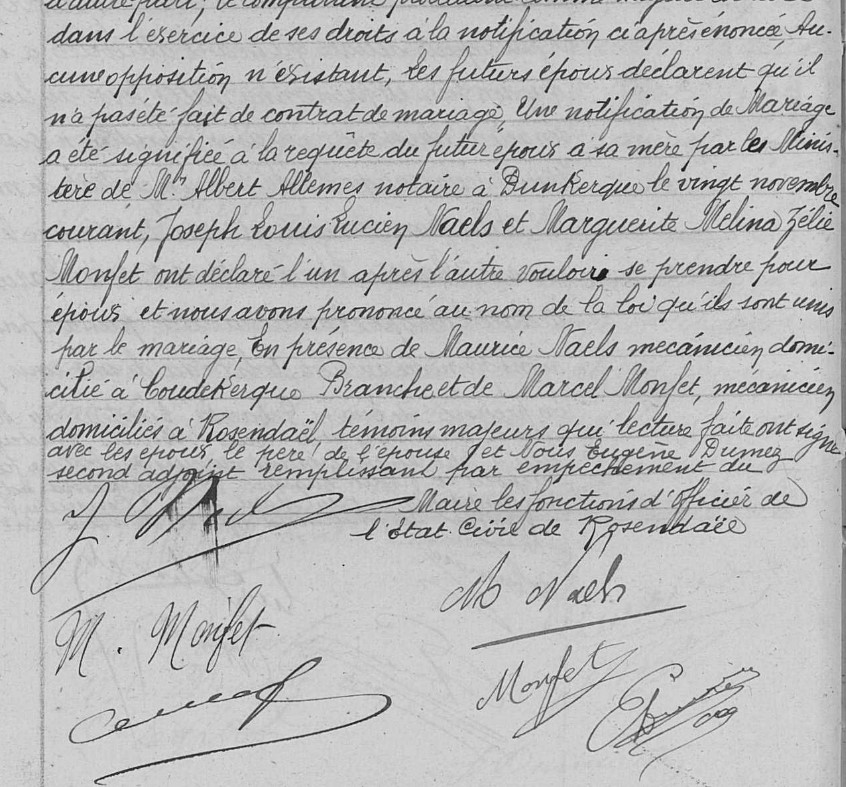 dans l'exercice de ses droits à la notification ci après énoncée, Au-
cune opposition n'existant, les futurs époux déclarent qu'il
n'a pas été fait de contrat de mariage, Une notification de Mariage
a été signifiée à la requête du futur époux à sa mère par les Minis-
tère de Me Albert Allemes notaire à Dunkerque le vingt novembre
courant, Joseph Louis Lucien Naels et Marguerite Melina Zélie
Monfet ont déclaré l'un après l'autre vouloir se prendre pour
époux et nous avons prononcé au nom de la loi qu'ils sont unis
par le mariage, En présence de Maurice Naels mecánicien domi-
cilié à Coudekerque Branche et de Marcel Monfet, mécanicien
domiciliés à Rosendaël, témoins majeurs qui lecture faite ont signé
avec les époux, le père de l'épouse et Nous Eugène Dumez
second adjoint remplissant par empêchement du
Maire les fonctions d'Officier de
l'État Civil de Rosendaël
J.
M Naels
M. Monfet
Monfet